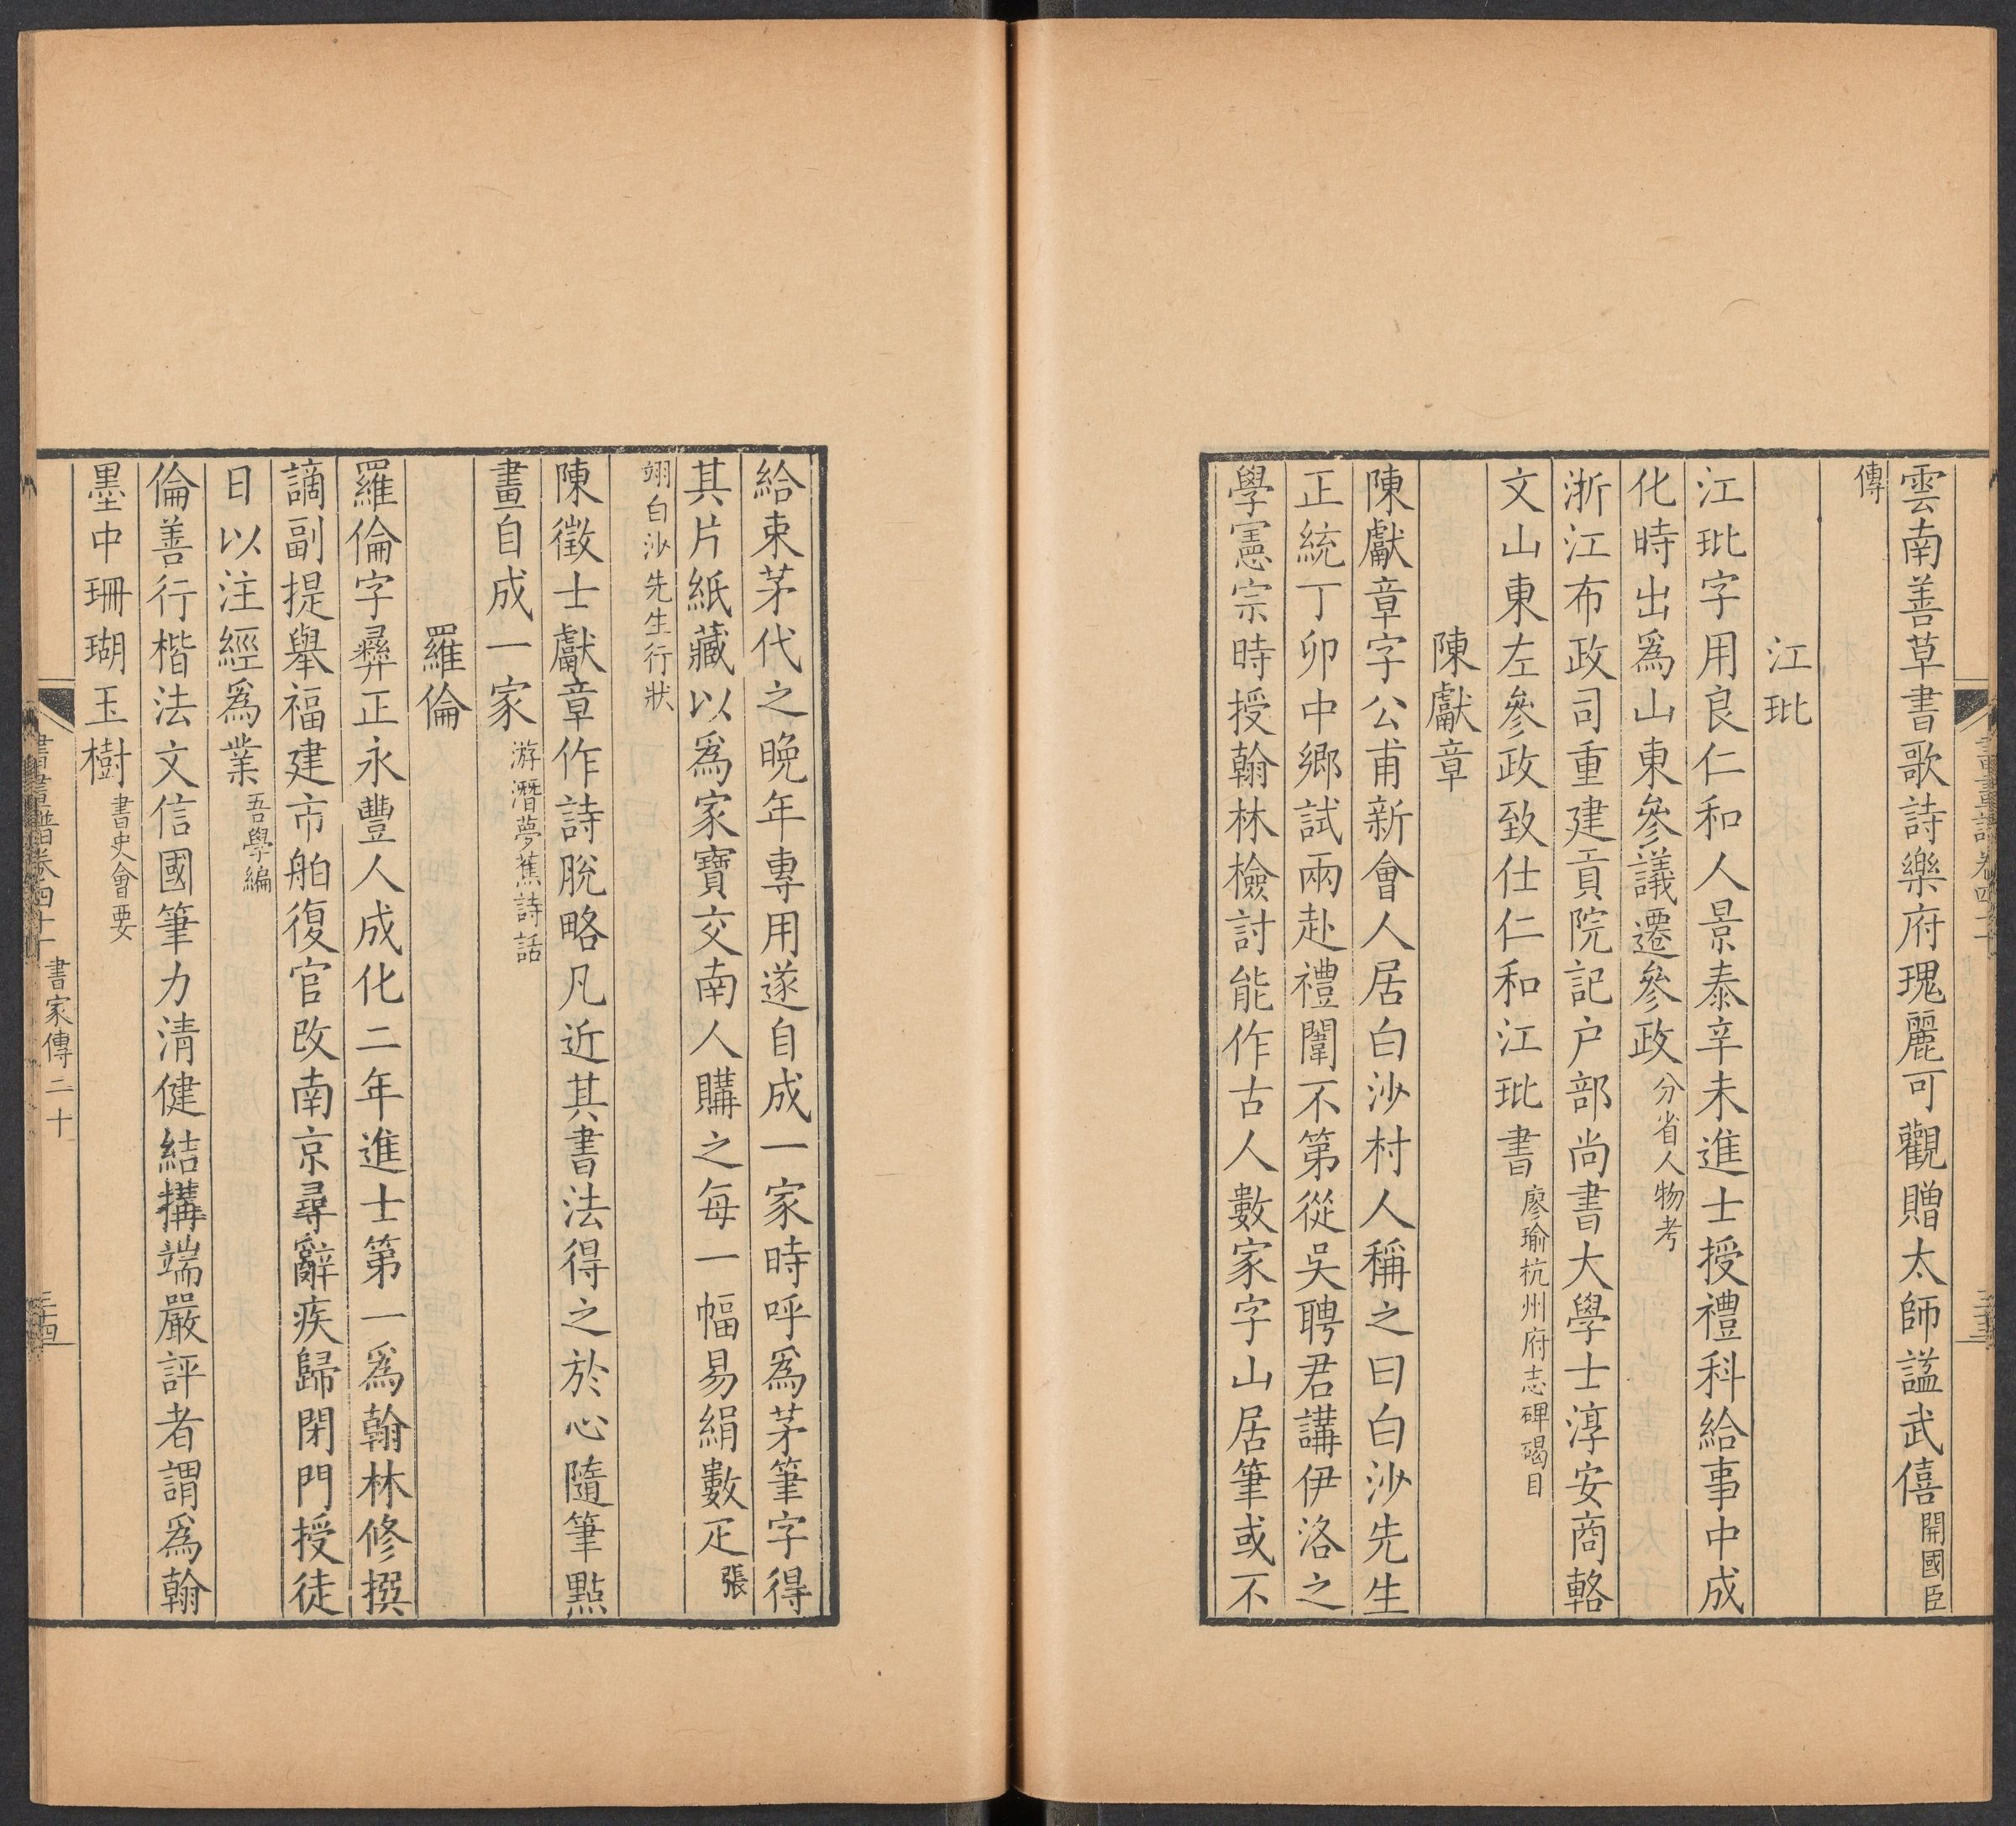 雲南善草書歌詩樂府瑰麗可觀贈太師謚武僖開國臣
傳
江玭
江玭字用良仁和人景泰辛未進士授禮科給事中成
化時出爲山東參議遷參政分省人物考
浙江布政司重建貢院記户部尚書大學士淳安商輅
文山東左參政致仕仁和江玭書廖瑜杭州府志碑碣目
陳獻章
陳獻章字公甫新會人居白沙村人稱之曰白沙先生
正統丁卯中鄉試兩赴禮闈不第從吳聘君講伊洛之
學憲宗時授翰林檢討能作古人數家字山居筆或不
給束茅代之晚年專用遂自成一家時呼爲茅筆字得
其片紙藏以爲家寶交南人購之每一幅易絹數疋張
翊白沙先生行狀
陳徵士獻章作詩脫略凡近其書法得之於心隨筆點
畫自成一家游潛夢蕉詩話
羅倫
羅倫字彞正永豐人成化二年進士第一爲翰林修撰
謫副提舉福建市舶復官改南京尋辭疾歸閉門授徒
日以注經爲業吾學編
倫善行楷法文信國筆力清健結搆端嚴評者謂爲翰
墨中珊瑚玉樹書史會要
書畫譜卷四十一 書家傳二十